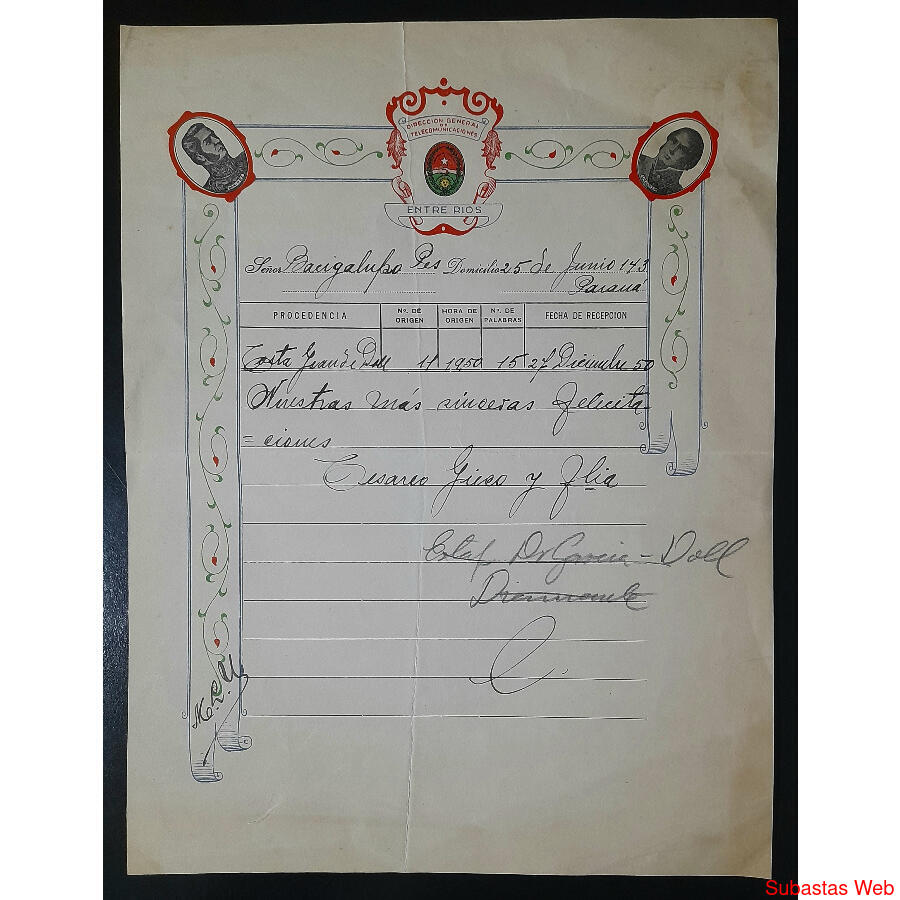 DIRECCION GENERAL
DE
TELECOMUNICACIONES
ENTRE RIOS
Señor Bacigalupo Domicilio 25 de Junio 143
Paraná
PROCEDENCIA Nº. DE ORIGEN HORA DE ORIGEN Nº. DE PALABRAS FECHA DE RECEPCION
Costa Grande Doll 11 1950 15 27 Diciembre 50
Nuestras más sinceras felicita
= ciones
Cesareo Gieco y Flia
Estaf Dr Garcia - Doll
Diamante
Subastas Web